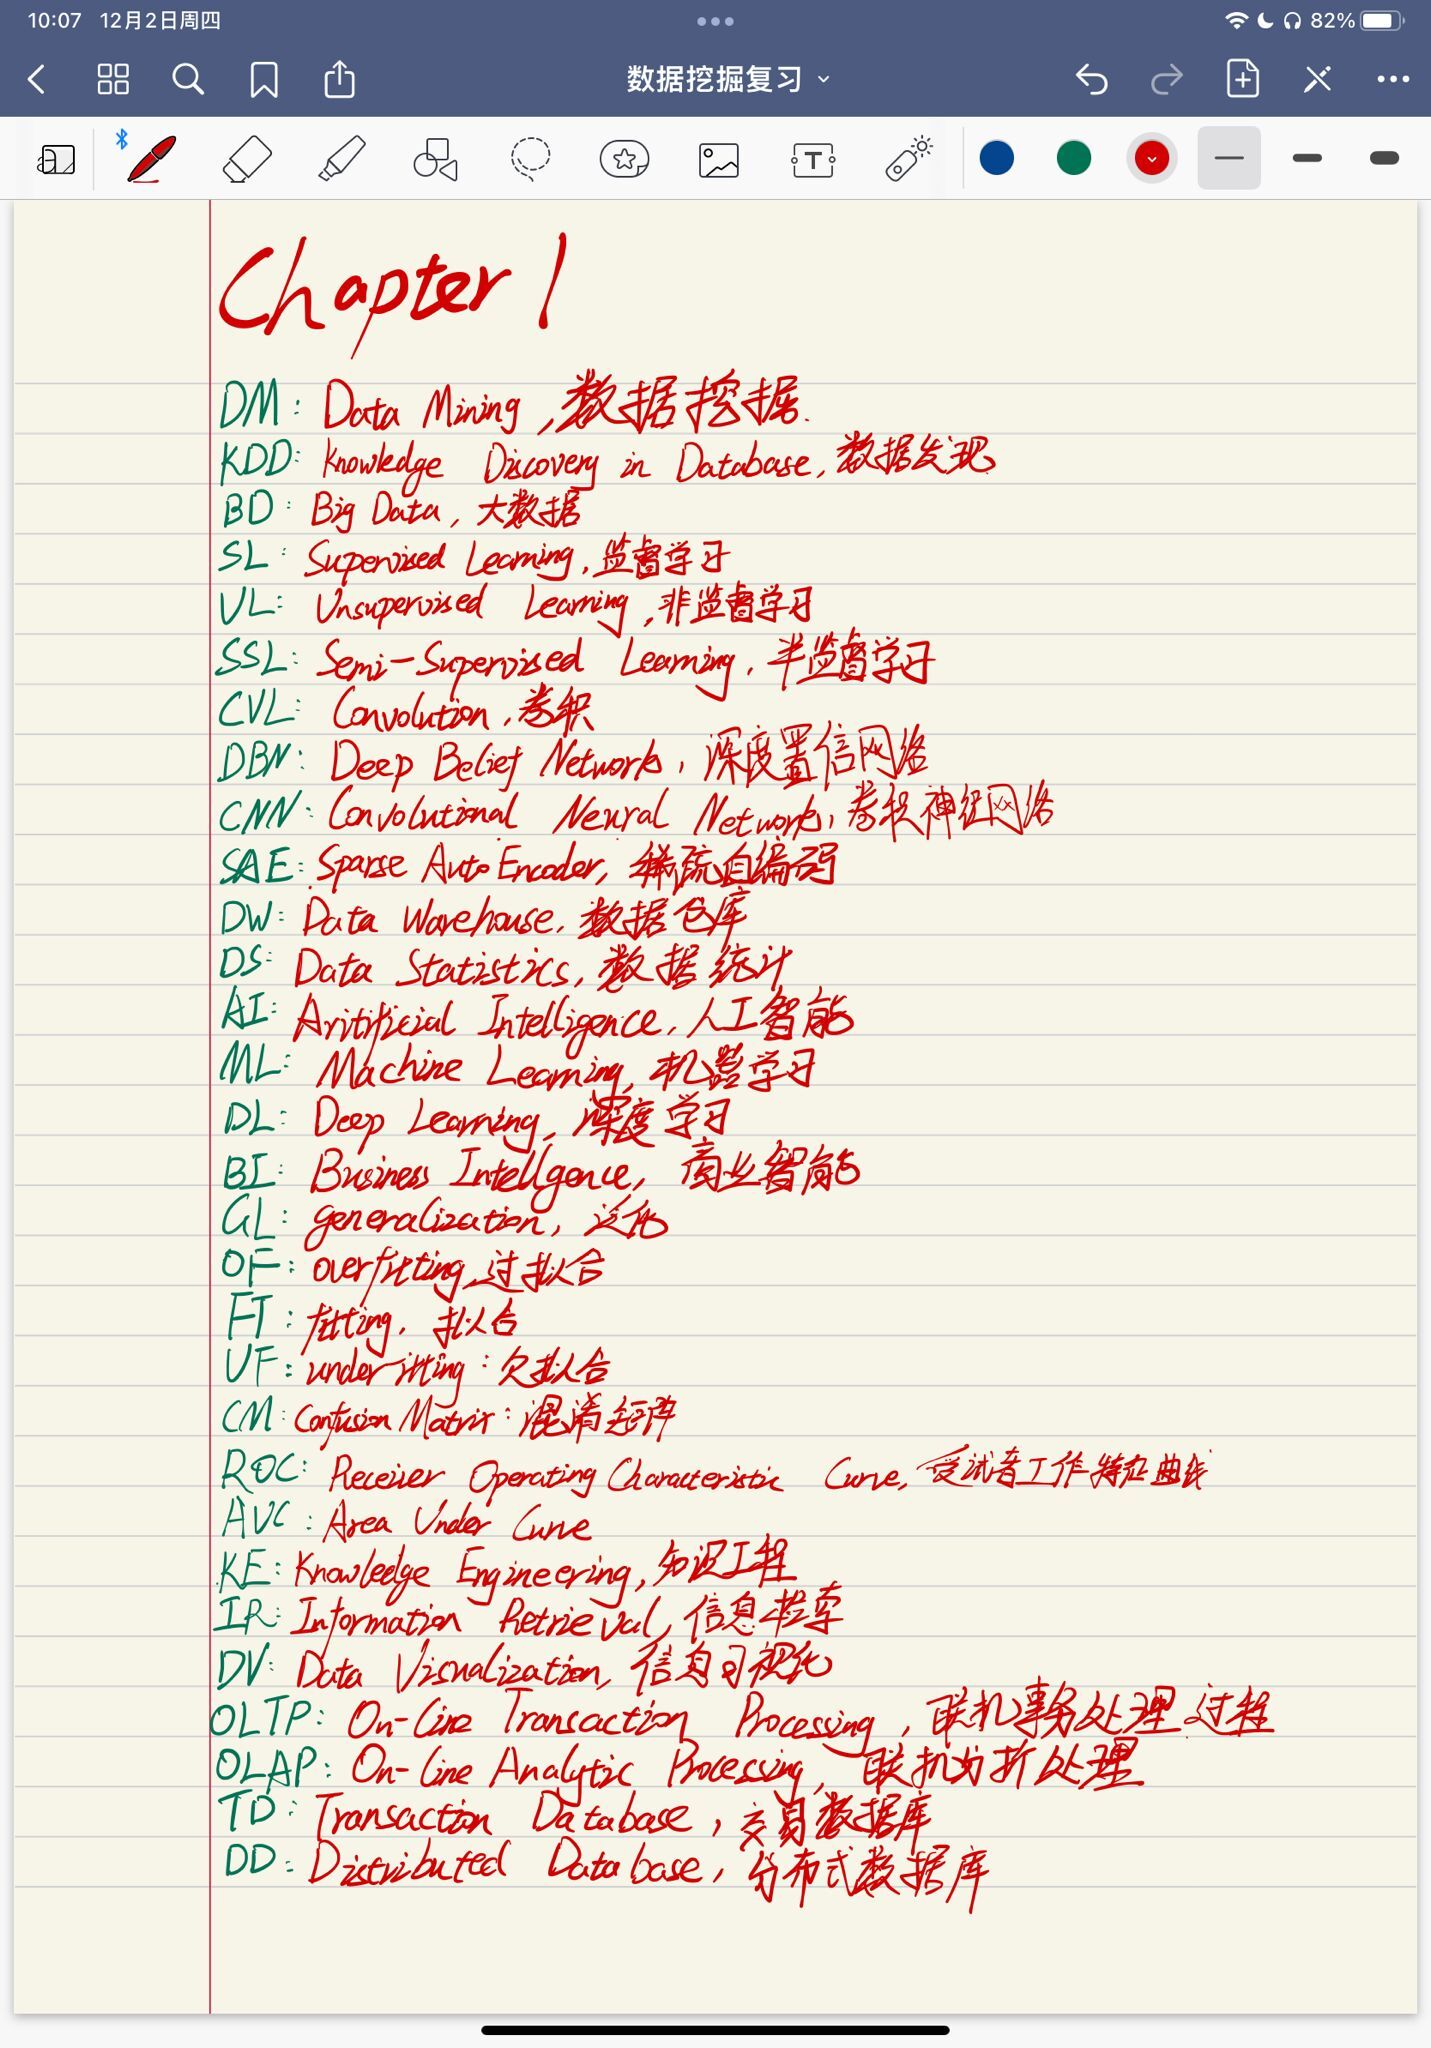 10:07 12月2日周四
82%
数据挖掘复习
Chapter 1
DM: Data Mining, 数据挖掘.
KDD: Knowledge Discovery in Database, 数据发现
BD: Big Data, 大数据
SL: Supervised Learning, 监督学习
UL: Unsupervised Learning, 非监督学习
SSL: Semi-Supervised Learning, 半监督学习
CVL: Convolution, 卷积
DBN: Deep Belief Network, 深度置信网络
CNN: Convolutional Neural Network, 卷积神经网络
SAE: Sparse Auto Encoder, 稀疏自编码
DW: Data Warehouse, 数据仓库
DS: Data Statistics, 数据统计
AI: Aritificial Intelligence, 人工智能
ML: Machine Learning, 机器学习
DL: Deep Learning, 深度学习
BI: Business Intellgence, 商业智能
GL: generalization, 泛化
OF: overfitting, 过拟合
FT: fitting, 拟合
UF: underfitting: 欠拟合
CM: Confusion Matrix: 混淆矩阵
ROC: Receiver Operating Characteristic Curve, 受试者工作特征曲线
AUC: Area Under Curve
KE: Knowledge Engineering, 知识工程
IR: Information Retrieval, 信息检索
DV: Data Visualization, 信息可视化
OLTP: On-Line Transaction Processing, 联机事务处理过程
OLAP: On-Line Analytic Processing, 联机分析处理
TD: Transaction Database, 交易数据库
DD: Distributed Database, 分布式数据库